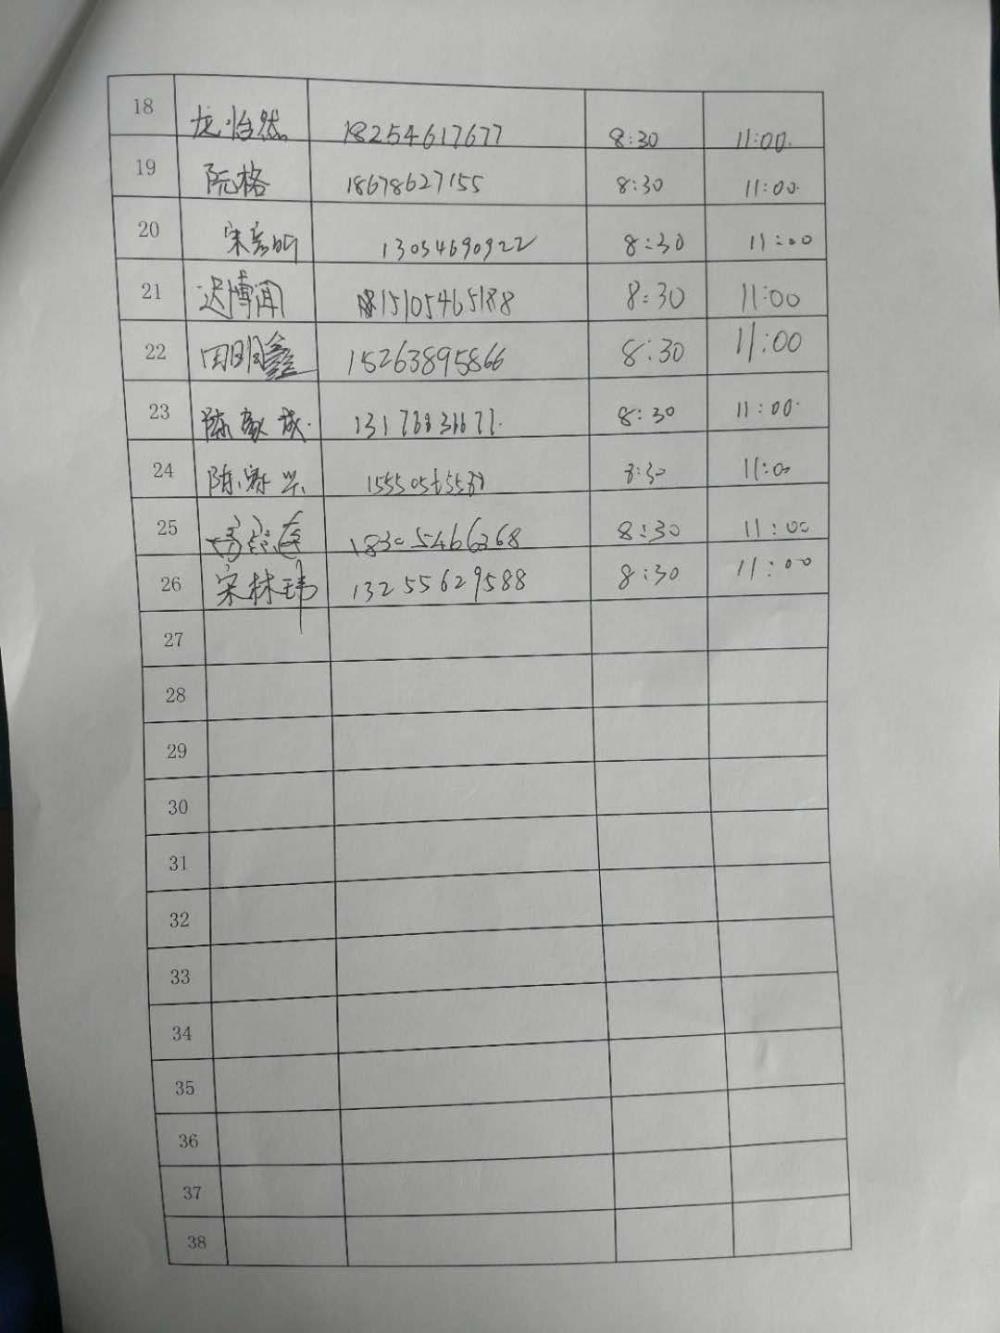 18 龙怡然 18254617677 8:30 11:00
19 阮格 18678627155 8:30 11:00
20 13054690922 8:30 11:00
21 迟博闻 15105465188 8:30 11:00
22 田明鑫 15263895866 8:30 11:00
23 陈 8:30 11:00
24 陈 8:30 11:00
25 18305466268 8:30 11:00
26 宋林玮 13255629588 8:30 11:00
27
28
29
30
31
32
33
34
35
36
37
38